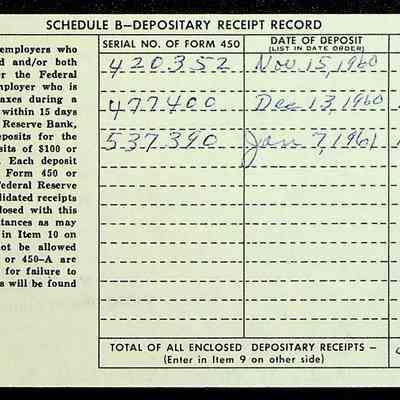 SCHEDULE B—DEPOSITARY RECEIPT RECORD
employers who
d and/or both
r the Federal
mployer who is
axes during a
within 15 days
Reserve Bank,
posits for the
sits of $100 or
. Each deposit
Form 450 or
ederal Reserve
lidated receipts
losed with this
tances as may
in Item 10 on
not be allowed
or 450–A are
for failure to
s will be found
SERIAL NO. OF FORM 450
DATE OF DEPOSIT
(LIST IN DATE ORDER)
420352 Nov 15, 1960
477400 Dec 13, 1960
537390 Jan 7, 1961
TOTAL OF ALL ENCLOSED DEPOSITARY RECEIPTS –
(Enter in Item 9 on other side)